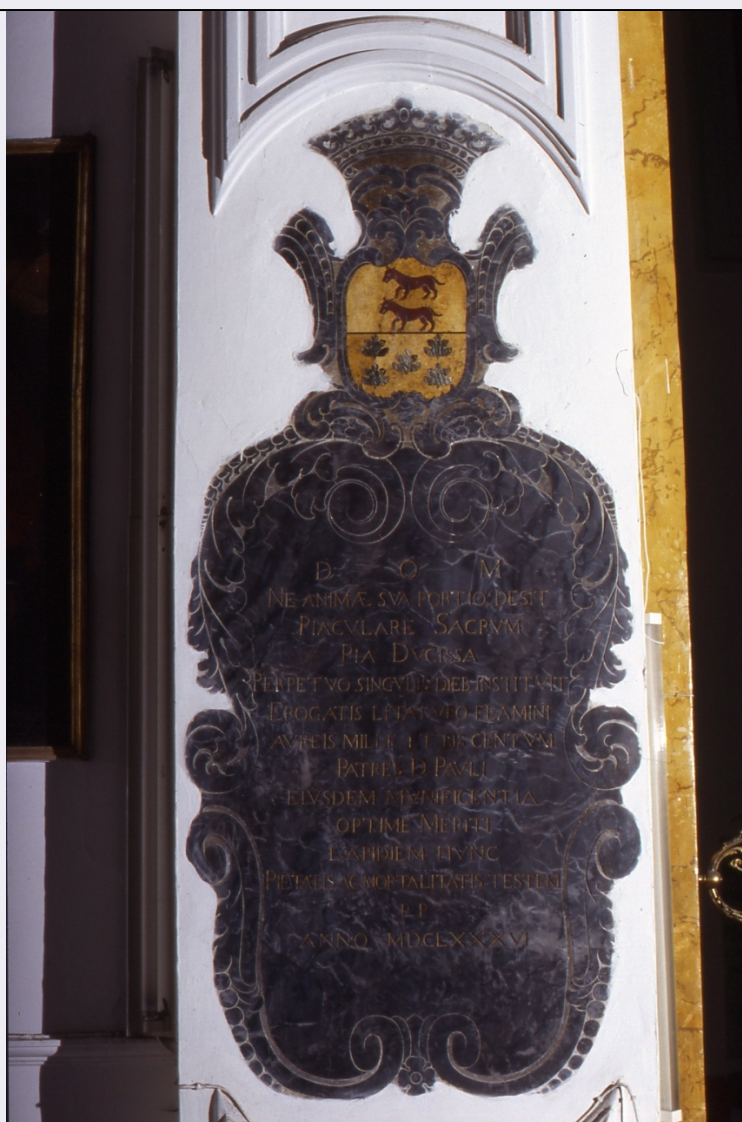 D O M
NE ANIMÆ SVA PORTIO DESIT
PIACVLARE SACRVM
PIA DVCISSA
PERPETVO SINGVLIS DIEB INSTITVIT
EROGATIS FLAMINI
AVREIS MILLE ET BISCENTVM
PATRES D PAVLI
EIVSDEM MVNIFICENTIA
OPTIME MERITI
LAPIDEM HVNC
PIETATIS AC MORTALITATIS TESTEM
P P
ANNO MDCLXXXVI